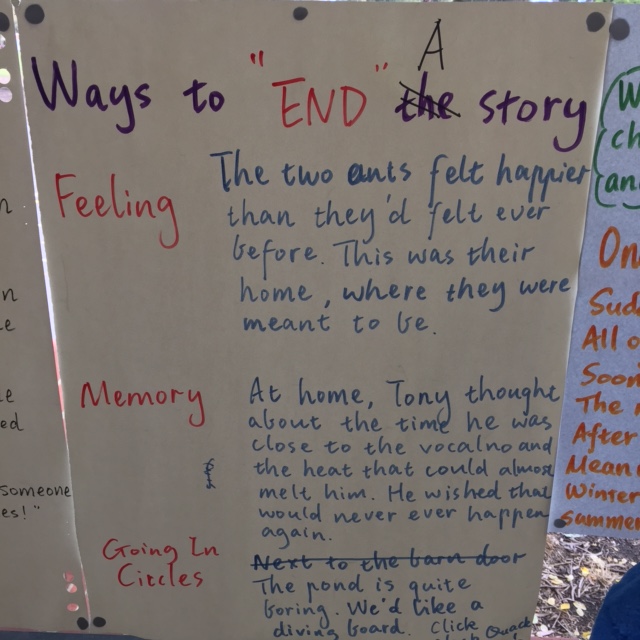 A
Ways to "END" the story
Feeling
The two ants felt happier
than they'd felt ever
before. This was their
home, where they were
meant to be.
Memory
At home, Tony thought
about the time he was
close to the vocalno and
the heat that could almost
melt him. He wished that
would never ever happen
again.
Going In
Circles
Next to the barn door
The pond is quite
boring. We'd like a
diving board. Click
Quack
someone
es!"
On
Sudd
All o
Soon
The
After
Mean
Winter
Summer